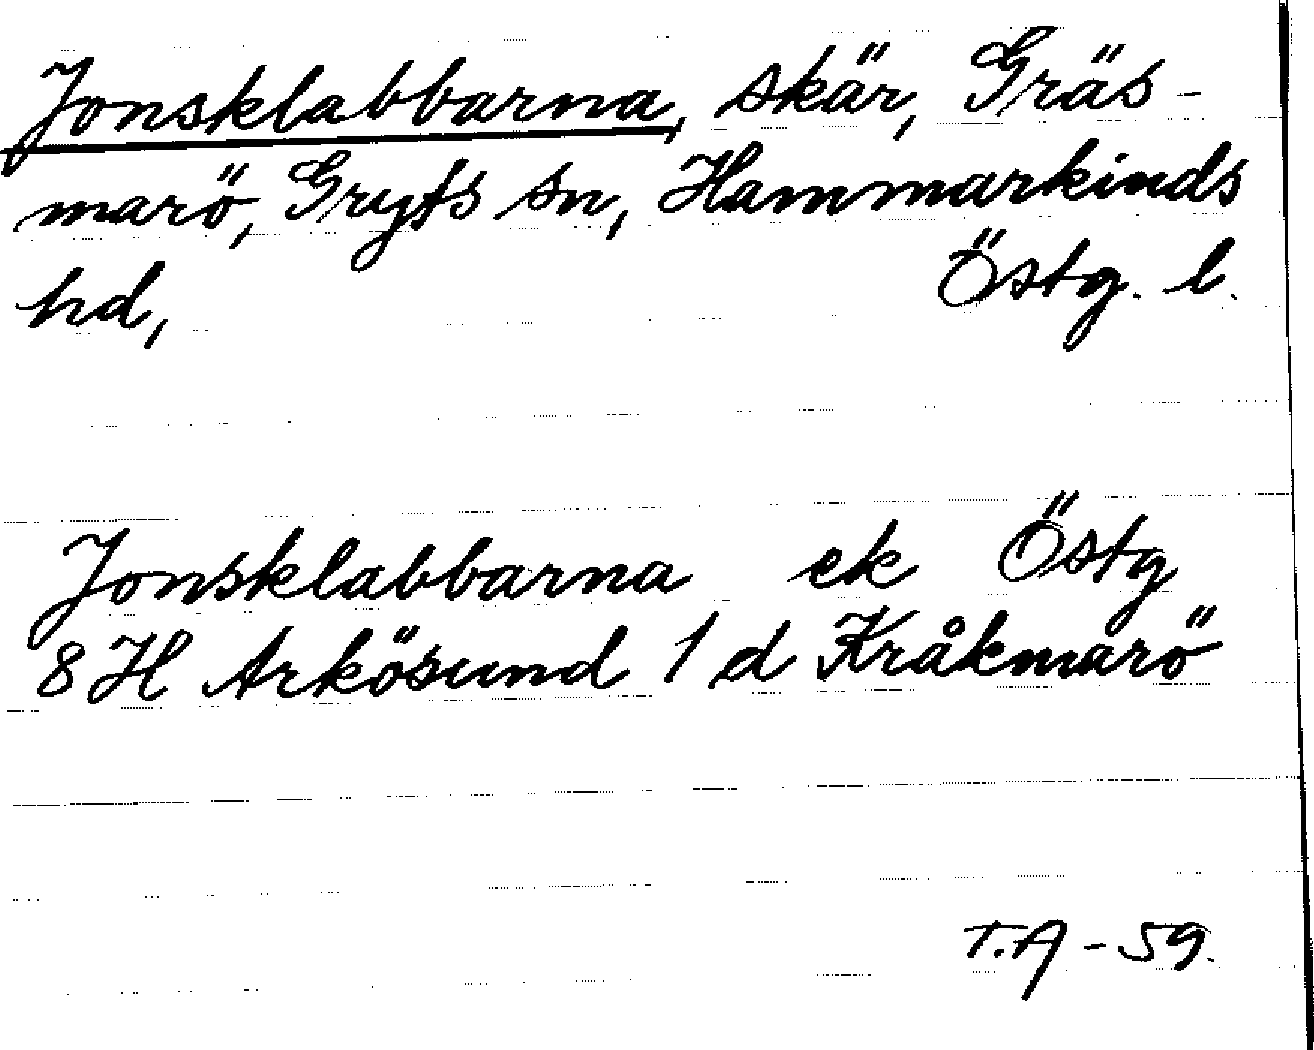 Jonsklabbarna, skär, Gräs-
marö, Gryts sn, Hammarkinds
hd, Östg. l.
Jonsklabbarna ek Östg
8H Arkösund 1 d Kråkmarö
T.A - 59.